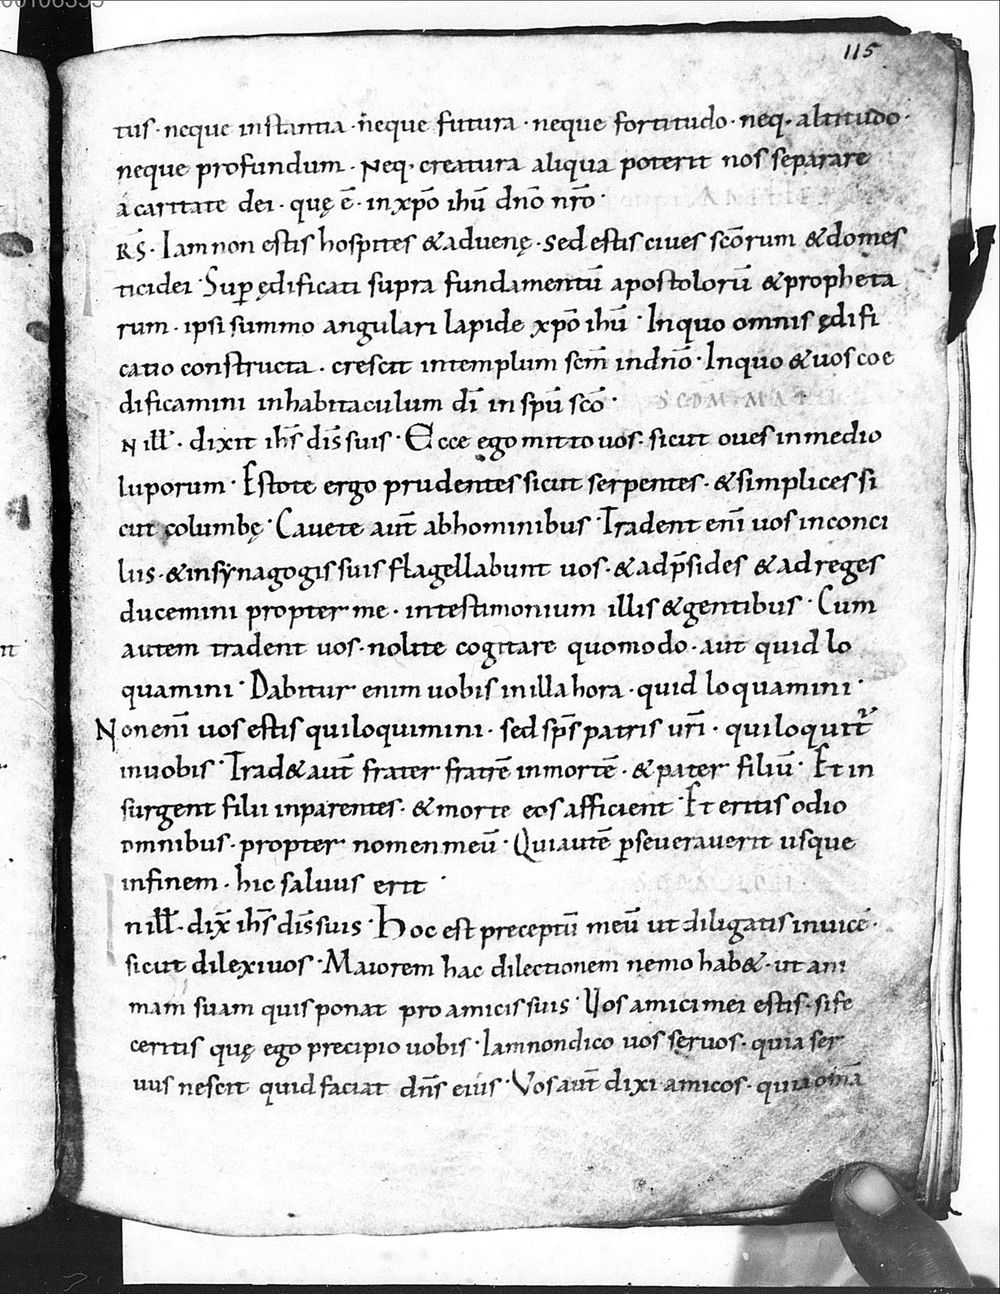 00106355
115
tus · neque instantia · neque futura · neque fortitudo · neq· altitudo ·
neque profundum · Neq· creatura aliqua poterit nos separare
a caritate dei · quę ē · in xp̄o ihū dn̄o nr̄o ·
R̄S · Iam non estis hospites & aduenę · sed estis ciues scōrum & domes
tici dei · Sup ędificati supra fundamentū apostolorū & propheta
rum · ipsi summo angulari lapide xp̄o ihū · In quo omnis ędifi
catio constructa · crescit in templum scm̄ in dn̄o · In quo & uos coe
dificamini in habitaculum dī in spū scō ·
N ill̄ · dixit ihs̄ dis̄ suis · Ecce ego mitto uos · sicut oues in medio
luporum · Estote ergo prudentes sicut serpentes · & simplices si
cut columbę · Cauete aut̄ ab hominibus · Tradent eni̅ uos in conci
liis · & in synagogis suis flagellabunt uos · & ad p̄sides & ad reges
ducemini propter me · in testimonium illis & gentibus · Cum
autem tradent uos · nolite cogitare quomodo · aut quid lo
quamini · Dabitur enim uobis in illa hora · quid loquamini ·
Non eni̅ uos estis qui loquimini · sed sps̄ patris ur̄i · qui loquit̄
in uobis · Trad& aut̄ frater fratrē in mortē · & pater filiū · Et in
surgent filii in parentes · & morte eos afficient · Et eritis odio
omnibus · propter nomen meū · Qui autē pseuerauerit usque
in finem · hic saluus erit ·
n ill̄ · dix̄ ihs̄ dis̄ suis · Hoc est preceptū meū ut diligatis inuicē ·
sicut dilexi uos · Maiorem hac dilectionem nemo hab& · ut ani
mam suam quis ponat pro amicis suis · Uos amici mei estis · si fe
ceritis quę ego precipio uobis · Iam non dico uos seruos · quia ser
uus nescit quid faciat dn̄s eius · Vos aut̄ dixi amicos · quia omīa